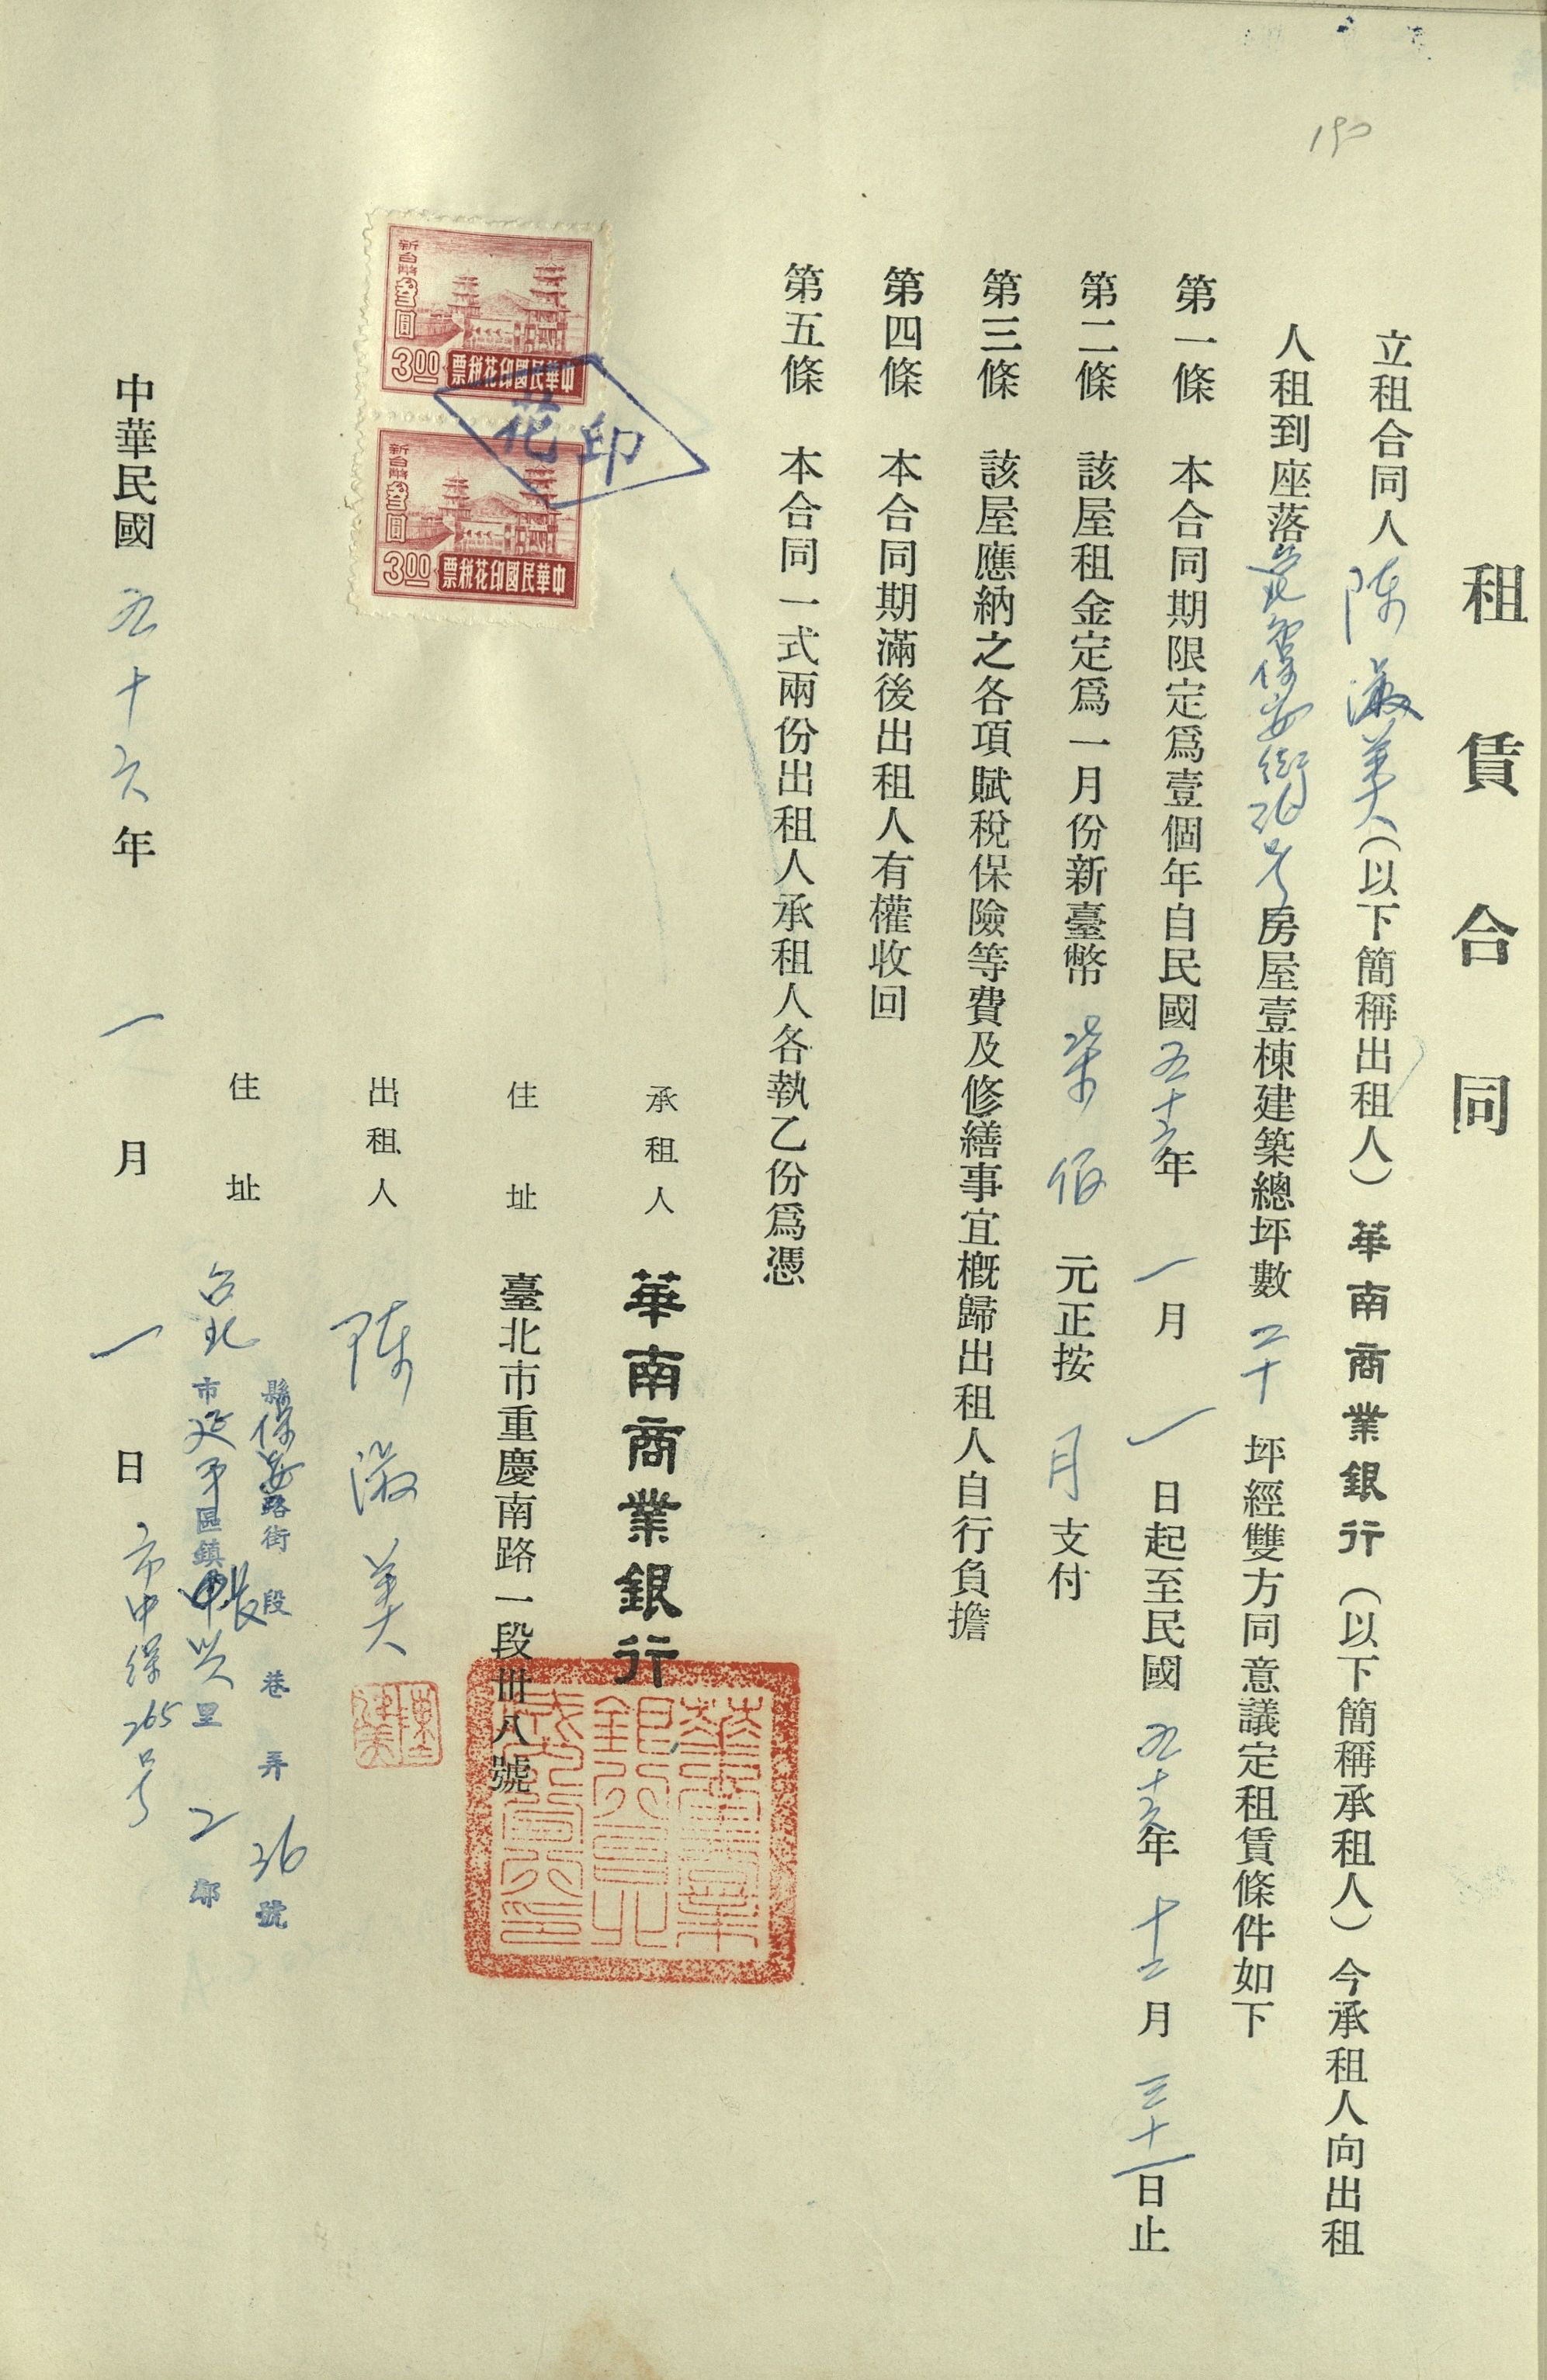 租賃合同
立租合同人陳淑美（以下簡稱出租人）華南商業銀行（以下簡稱承租人）今承租人向出租
人租到座落臺北市保安街36号房屋壹棟建築總坪數二十坪經雙方同意議定租賃條件如下
第一條 本合同期限定爲壹個年自民國五十六年一月一日起至民國五十六年十二月三十一日止
第二條 該屋租金定爲一月份新臺幣柒佰元正按月支付
第三條 該屋應納之各項賦稅保險等費及修繕事宜概歸出租人自行負擔
第四條 本合同期滿後出租人有權收回
第五條 本合同一式兩份出租人承租人各執乙份爲憑
新台幣叁圓
3.00
中華民國印花稅票
新台幣叁圓
3.00
中華民國印花稅票
印花
承租人 華南商業銀行
住址 臺北市重慶南路一段卅八號
出租人 陳淑美
住址 台北
縣保安路街 段 巷 弄 36 號
市延平區鎮 里 2 鄰
中華民國五十六年 一月 一日
市中保265号
190